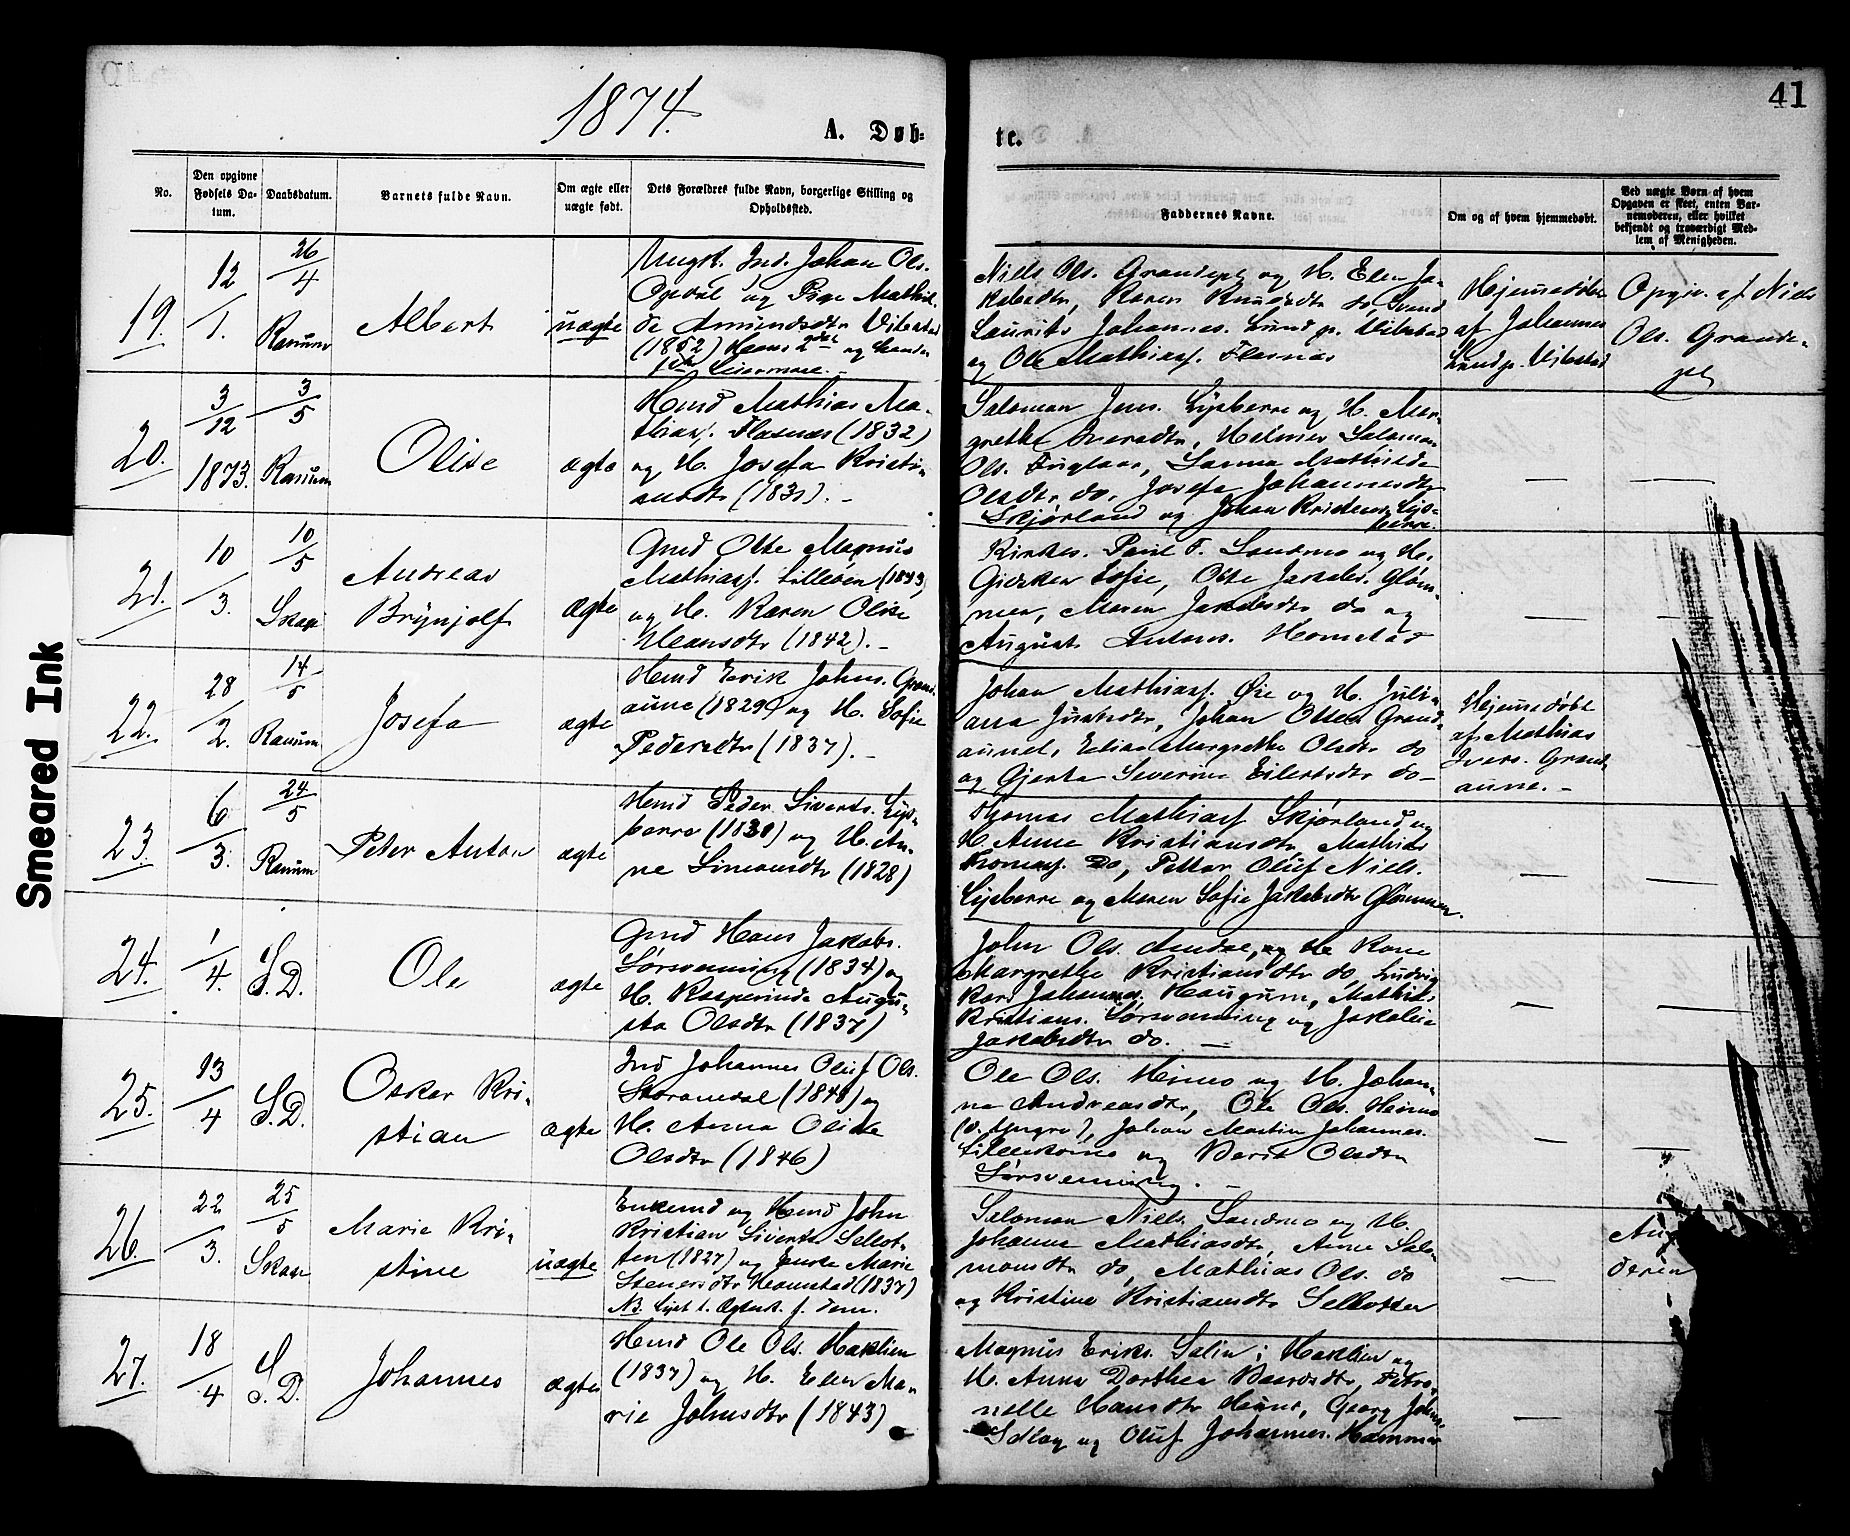 1874.
41
A. Døb-
te.
No.
Den opgivne Fødsels Da-
tum.
Daabsdatum.
Barnets fulde Navn.
Om ægte eller
uægte født.
Dets Forældres fulde Navn, borgerlige Stilling og
Opholdssted.
Faddernes Navne.
Om og af hvem hjemmedøbt.
Ved uægte Børn af hvem
Opgaven er skeet, enten Bar-
nemoderen, eller hvilket
bekjendt og troværdigt Med-
lem af Menigheden.
19.
12/1.
26/4
Ranum
Albert
uægte
Ungk. Ind. Johan Ols.
Opdal og Pige Mathil-
de Amundsdtr Vibstad
(1852) Hans 2den og hendes
1ste Leiermaal.
Niels Ols. Grandepl og H. Elen Ja-
kobsdtr, Karen Knudsdtr do, Svend
Laurits Johannes. Lundpl. Vibstad
og Ole Mathiass. Flasnæs
Hjemmedøbt
af Johannes
Lundpl. Vibstad
Opgiv. af Niels
Ols. Grande-
pl
20.
3/12
1873.
3/5
Ranum
Olise
ægte
Hmd Mathias Ma-
thiass. Flasnæs (1832)
og H. Josefa Kristi-
ansdtr (1831). -
Salomon Jens. Lysberre og H. Mar-
grethe Iversdtr, Helmer Salomon
Ols. Fuglaar, Sanna Mathilde
Olsdtr do, Josefa Johannesdtr
Skjørland og Johan Kristens. Lys-
berre.
21.
10/3.
10/5
Skage
Andreas
Brynjolf
ægte
Gmd Otte Magnus
Mathiass. Lilleøen (1843)
og H. Karen Olise
Hansdtr (1842). -
Kirkes. Paul T. Sandmo og H.
Gidsken Sofie, Otte Jakobs. Gløm-
men, Maren Jakobsdtr do og
August Antons. Homstad
22.
28/2.
14/5
Ranum
Josefa
ægte
Hmd Erik Johns. Grand-
aune (1829) og H. Sofie
Pedersdtr (1837). -
Johan Mathiass. Øie og H. Juli-
ana Jisaksdtr, Johan Ottes. Grand-
aunet, Elise Margrethe Olsdtr do
og Gjerta Severine Eilertsdtr do-
Hjemmedøbt
af Mathias
Ivers. Grand-
aune. -
23.
6/3.
24/5
Ranum
Peter Anton
ægte
Hmd Peder Siverts. Lys-
berre (1838) og H. An-
ne Simonsdtr (1828)
Thomas Mathiass Skjørland og
H. Anne Kristiansdtr, Mathias
Thomass. Do, Petter Oluf Niels.
Lysberre og Maren Sofie Jakobsdtr Glømmen.
24.
1/4.
S.D.
Ole
ægte
Gmd Hans Jakobs.
Sørsvenning (1834) og
H. Kasperinde Augu-
sta Olsdtr (1837)
John Ols. Amdal, og H. Kone
Margrethe Kristiansdtr do, Ludvig
Karl Johannes. Haugum, Mathias
Kristians. Sørsvenning og Jakobia
Jakobsdtr do. -
25.
13/4
S.D.
Oskar Kri-
stian
ægte
Ind Johannes Oluf Ols.
Storamdal (1848) og
H. Anna Olise
Olsdtr (1846)
Ole Ols. Heimo og H. Johan-
na Andreasdtr, Ole Ols. Heimo
(d. Yngre), Johan Martin Johannes.
og Berit Olsdtr
Sørsvenning. -
26.
22/3.
25/5
Skage
Marie Kri-
stine
uægte
Enkemd og Hmd John
Kristian Siverts. Sellot-
ten (1827) og Enke Marie
Stenersdtr Homstad (1837)
NB. Lyst t. Ægtesk. f. dem.
Salomon Niels. Sandmo og H.
Johanna Mathiasdtr, Anne Salo-
monsdtr do, Mathias Ols. do
og Kristine Kristiansdtr Sellotten
27.
18/4
S.D.
Johannes
ægte
Hmd Ole Ols. Haklien
(1837) og H. Ellen Ma-
rie Johnsdtr (1843)
Magnus Eriks. Solin i Haklien og
H. Anne Dorthea Baardsdtr, Petro-
nelle Hansdtr Heimo, Georg Johns.
Solbog og Oluf Johannes. Hammer
Smeared Ink